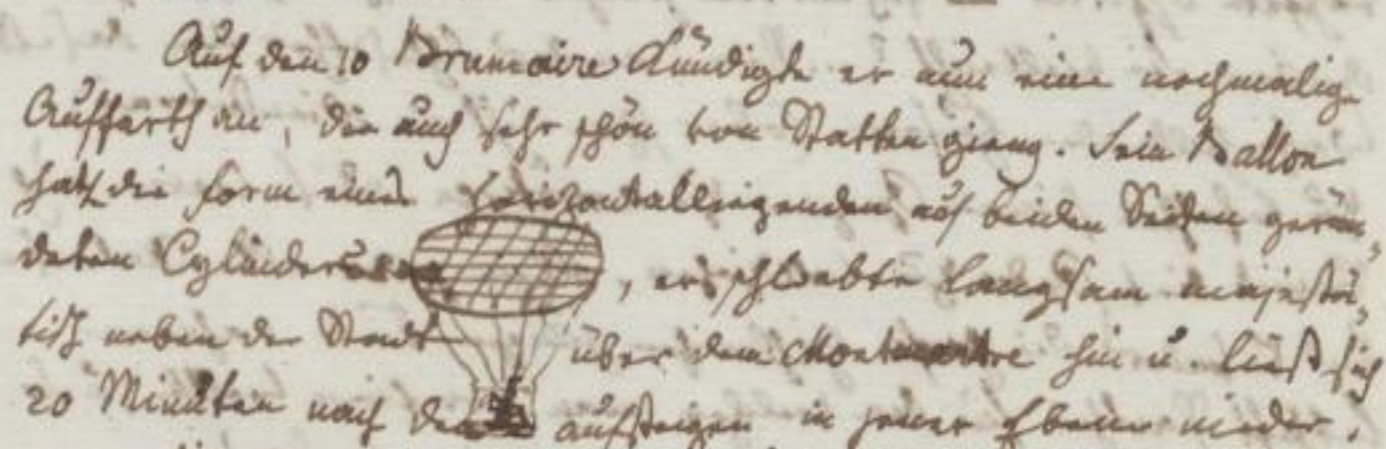 Auf den 10 Brumaire kündigte er nun eine nochmalige
Auffarth an, die auch sehr schön von Statten gieng. Sein Ballon
hat die Form eines horizontalliegenden auf beiden Seiten gerün,
deten Cylinders, er schwebte langsam majestä,
tisch neben der Stadt über dem Montmartre hin u. ließ sich
20 Minuten nach dem aufsteigen in jener Ebene nieder.